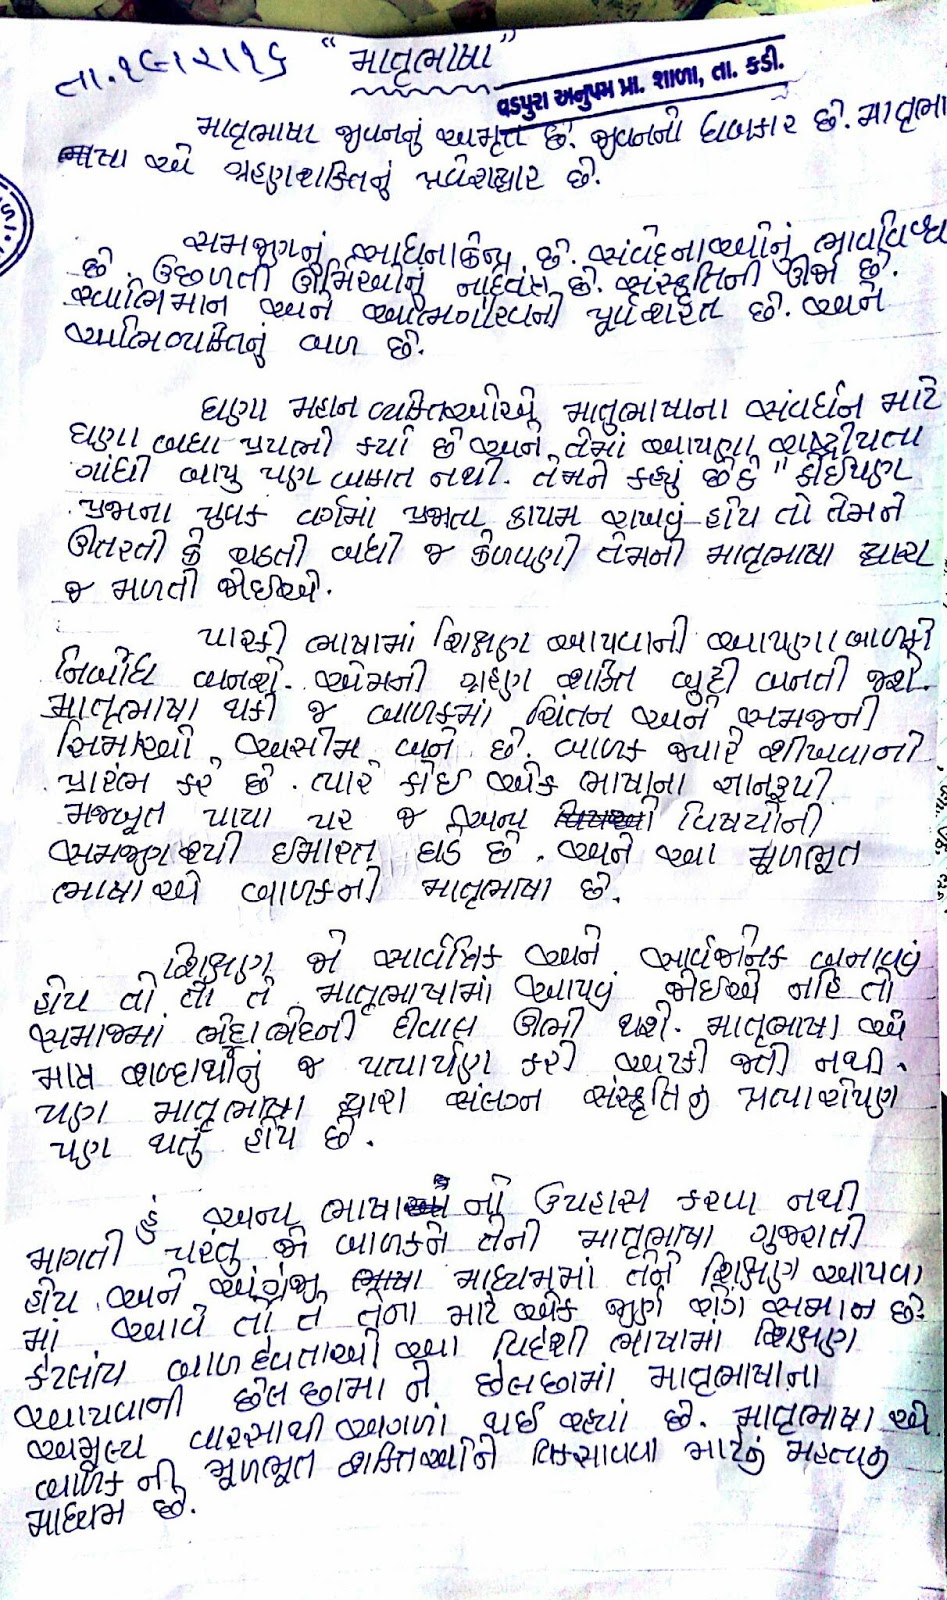 તા.૧૯।૨।૧૬ "માતૃભાષા"
વડપુરા અનુપમ પ્રા. શાળા, તા. કડી.
માતૃભાષા જીવનનું અમૃત છે. જીવનનો ધબકાર છે. માતૃભા
ભાષા એ ગ્રહણશક્તિનું પ્રવેશદ્વાર છે.
સમજણનું છે. સંવેદનાઓનું ભાવવિશ્વ
છે. ઉછળતી ઊર્મિઓનું છે. સંસ્કૃતિની ઊર્જા છે.
સ્વાભિમાન અને આત્મગૌરવની પૂર્વશરત છે. અને
અભિવ્યક્તિનું બળ છે.
ઘણા મહાન વ્યક્તિઓએ માતૃભાષાના સંવર્ધન માટે
ઘણા બધા પ્રયત્નો કર્યા છે અને તેમાં આપણા રાષ્ટ્રીયતા
ગાંધી બાપુ પણ બાકાત નથી. તેમને કહ્યું છે કે "કોઈપણ
પ્રજાના યુવક વર્ગમાં પ્રજાતા કાયમ રાખવું હોય તો તેમને
ઊતરતી કે ચઢતી બધી જ કેળવણી તેમની માતૃભાષા દ્વારા
જ મળતી જોઈએ.
પારકી ભાષામાં શિક્ષણ આપવાની આપણા બાળકો
નિર્બોધ બનશે. એમની ગ્રહણ શક્તિ બુઠ્ઠી બનતી જશે.
માતૃભાષા થકી જ બાળકમાં ચિંતન અને સમજની
સિમાઓ અસીમ બને છે. બાળક જ્યારે શીખવાનો
પ્રારંભ કરે છે. ત્યારે કોઈ એક ભાષાના જ્ઞાનરૂપી
મજબૂત પાયા પર જ અન્ય વિષયોની
સમજણરૂપી ઈમારત ઘડે છે. અને આ મૂળભૂત
ભાષા એ બાળકની માતૃભાષા છે.
શિક્ષણ જો સાર્વત્રિક અને સાર્વજનિક બનાવવું
હોય તો તો તે માતૃભાષામાં આપવું જોઈએ નહિ તો
સમાજમાં ભેદાભેદની દીવાલ ઊભી થશે. માતૃભાષા એ
માત્ર શબ્દાર્થોનું જ કરી અટકી જતી નથી.
પણ માતૃભાષા દ્વારા સંલગ્ન સંસ્કૃતિનુ પ્રત્યારોપણ
પણ થતું હોય છે.
હું અન્ય ભાષાઓનો ઉપહાસ કરવા નથી
માગતી પરંતુ જો બાળકને તેની માતૃભાષા ગુજરાતી
હોય અને અંગ્રેજી ભાષા માધ્યમમાં તેને શિક્ષણ આપવા
માં આવે તો તે તેના માટે એક સમાન છે.
કેટલાંય બાળદેવતાઓ આ વિદેશી ભાષામાં શિક્ષણ
આપવાની છેલછામા ને છેલછામાં માતૃભાષાના
અમૂલ્ય વારસાથી અળગાં થઈ રહ્યાં છે. માતૃભાષા એ
બાળક ની મૂળભૂત શક્તિઓને વિકસાવવા માટેનું મહત્વનુ
માધ્યમ છે.